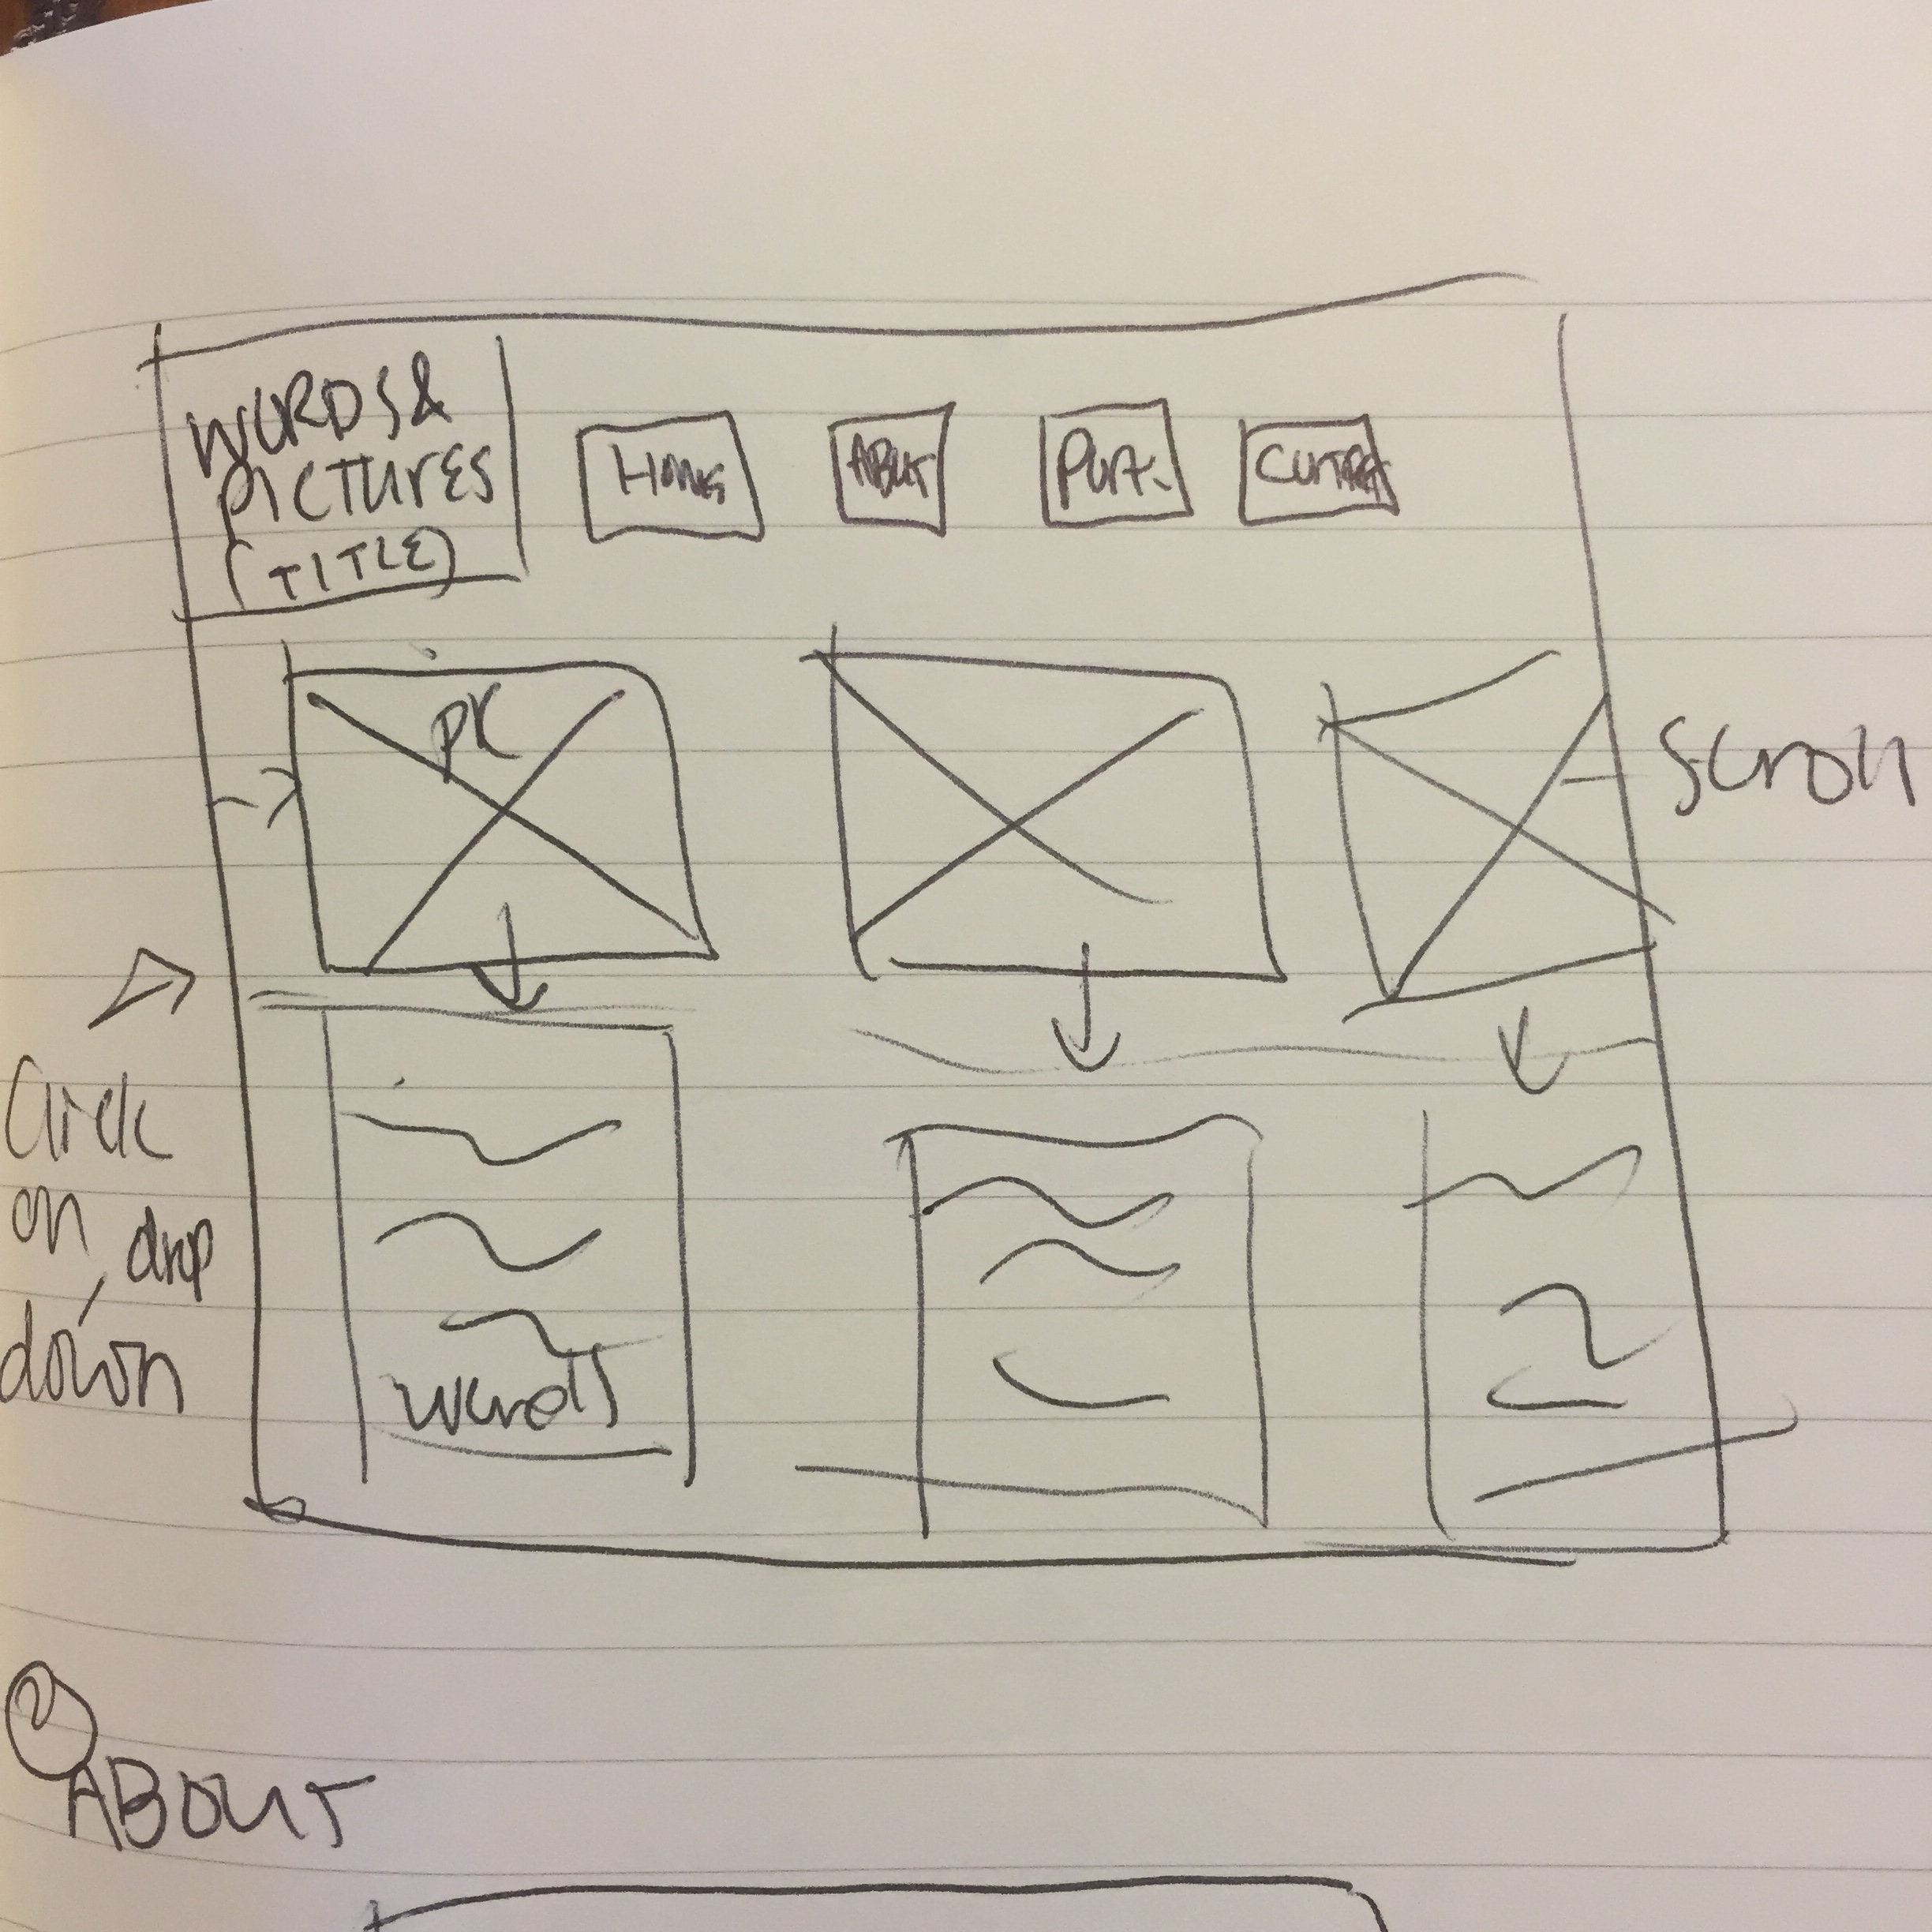 WORDS &
PICTURES
(TITLE)
HOME
ABOUT
PORT.
CONTACT
PIC
Scroll
Click
on drop
down
words
2
ABOUT